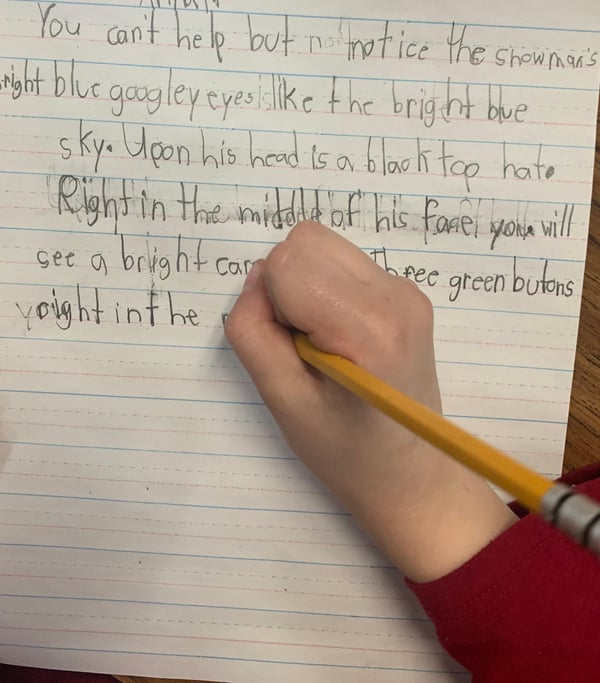 You can't help but notice the showman's
right blue googley eyes like the bright blue
sky. Upon his head is a black top hat.
Right in the middle of his face, you will
see a bright three green butons
right in the